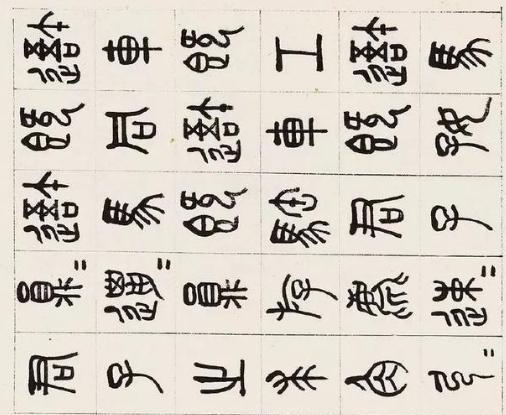 避車既工避馬
既同避車既好
避馬既䮀君子
員=邋=員斿麀速=
君子之求角弓=